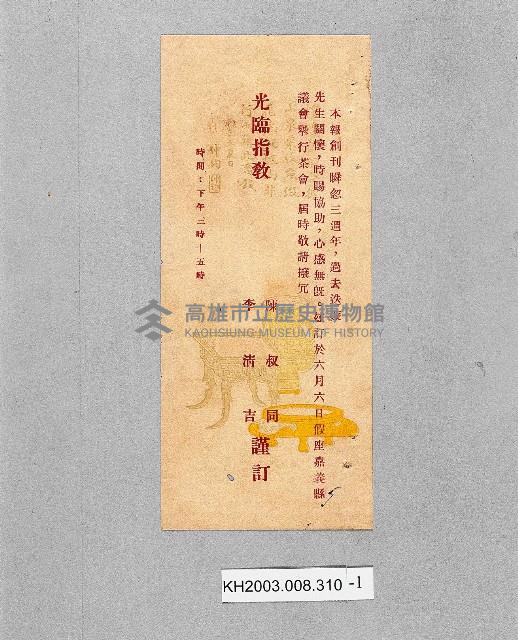 本報創刊瞬忽三週年，過去泆承
先生關懷，時賜協助，心感無旣。茲訂於六月六日假座嘉義縣
議會舉行茶會，屆時敬請撥冗
光臨指教
陳叔同
李清吉
謹訂
時間：下午三時—五時
高雄市立歷史博物館
KAOHSIUNG MUSEUM OF HISTORY
KH2003.008.310 -1